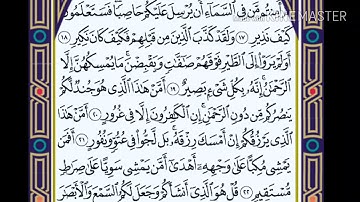 Made with KINEMASTER
أَمِنتُم مَّن فِي ٱلسَّمَآءِ أَن يُرْسِلَ عَلَيْكُمْ حَاصِبًا فَسَتَعْلَمُونَ
كَيْفَ نَذِيرِ ١٧ وَلَقَدْ كَذَّبَ ٱلَّذِينَ مِن قَبْلِهِمْ فَكَيْفَ كَانَ نَكِيرِ ١٨
أَوَلَمْ يَرَوْا۟ إِلَى ٱلطَّيْرِ فَوْقَهُمْ صَٰٓفَّٰتٍ وَيَقْبِضْنَ مَا يُمْسِكُهُنَّ إِلَّا
ٱلرَّحْمَٰنُ إِنَّهُۥ بِكُلِّ شَىْءٍۭ بَصِيرٌ ١٩ أَمَّنْ هَٰذَا ٱلَّذِى هُوَ جُندٌ لَّكُمْ
يَنصُرُكُم مِّن دُونِ ٱلرَّحْمَٰنِ إِنِ ٱلْكَٰفِرُونَ إِلَّا فِى غُرُورٍ ٢٠ أَمَّنْ هَٰذَا
ٱلَّذِى يَرْزُقُكُمْ إِنْ أَمْسَكَ رِزْقَهُۥ بَل لَّجُّوا۟ فِى عُتُوٍّ وَنُفُورٍ ٢١ أَفَمَن
يَمْشِى مُكِبًّا عَلَىٰ وَجْهِهِۦٓ أَهْدَىٰٓ أَمَّن يَمْشِى سَوِيًّا عَلَىٰ صِرَٰطٍ
مُّسْتَقِيمٍ ٢٢ قُلْ هُوَ ٱلَّذِىٓ أَنشَأَكُمْ وَجَعَلَ لَكُمُ ٱلسَّمْعَ وَٱلْأَبْصَٰرَ